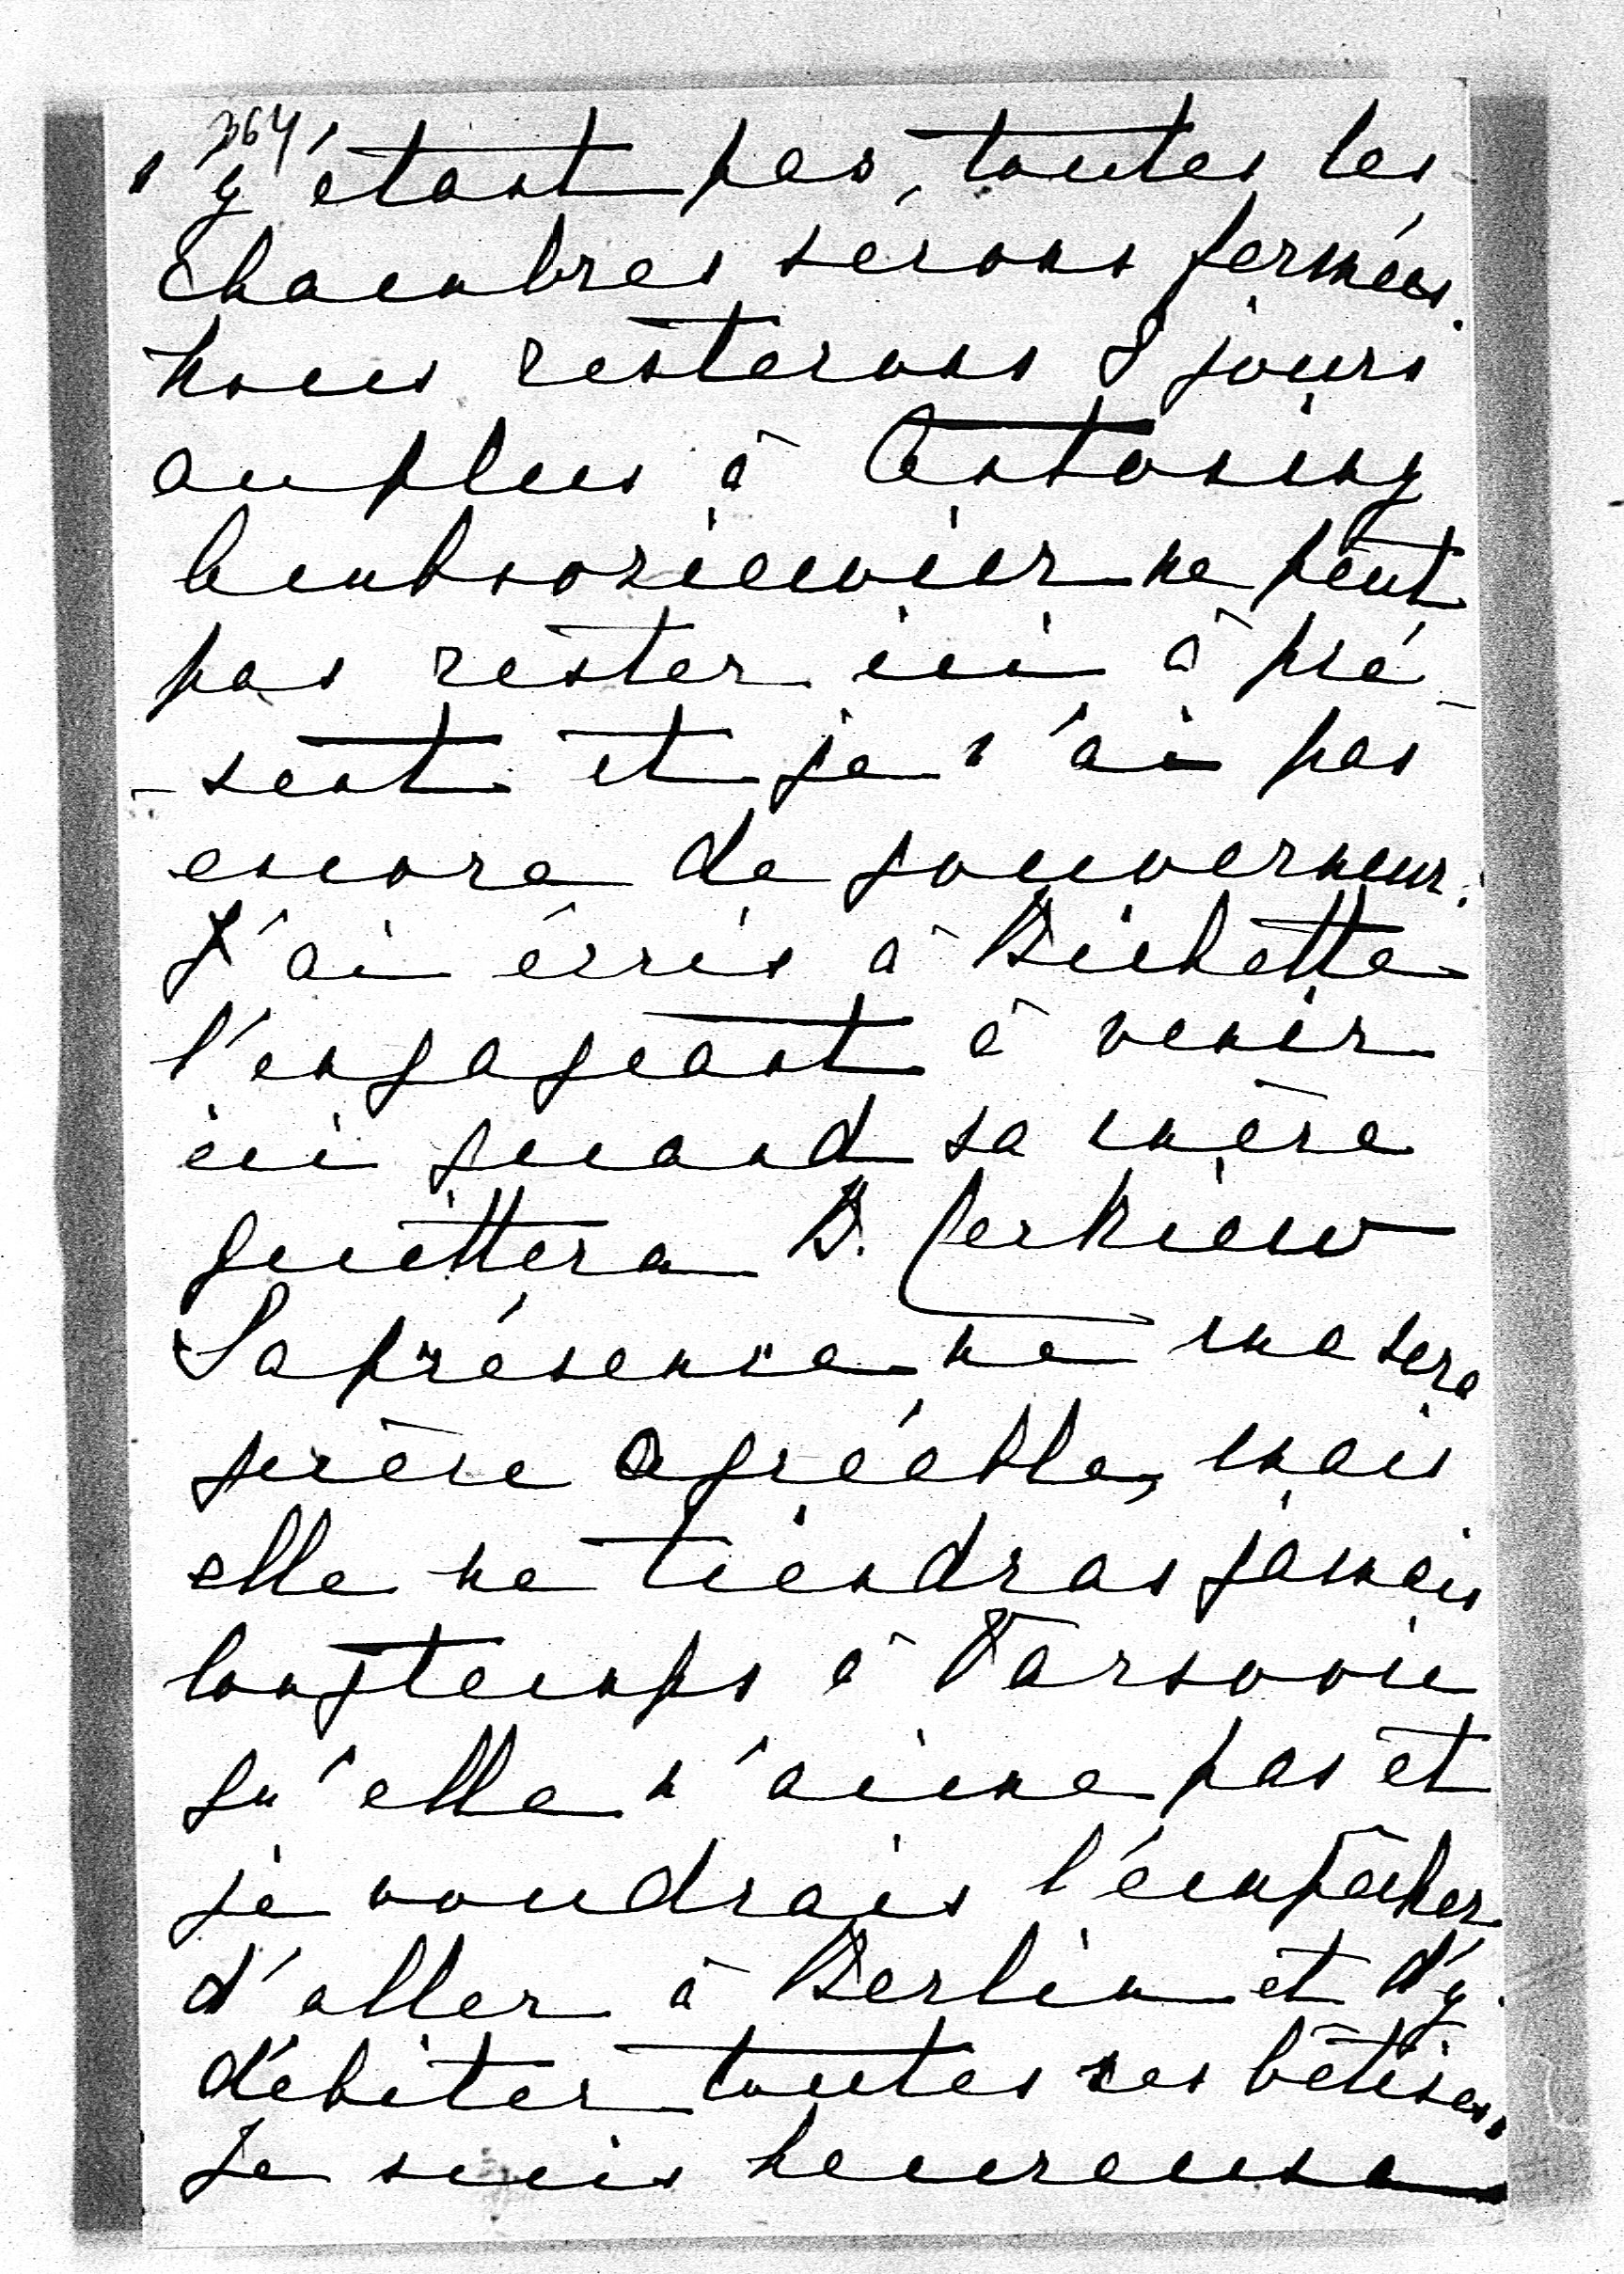 364
n'y étant pas, toutes les
chambres serons fermées.
Nous resterons 8 jours
au plus à Antoniny
ne peut
pas rester ici à pré-
-sent et je n'ai pas
encore de gouverneur.
J'ai écris à Bichette
l'engageant à venir
ici quand sa mère
quittera B. Cerkiew
Sa présence ne me sera
guère agréable, mais
elle ne tiendras jamais
longtemps à Varsovie
qu'elle n'aime pas et
je voudrais l'empêcher
d'aller à Berlin et d'y
débiter toutes ses bêtises.
Je suis heureuse